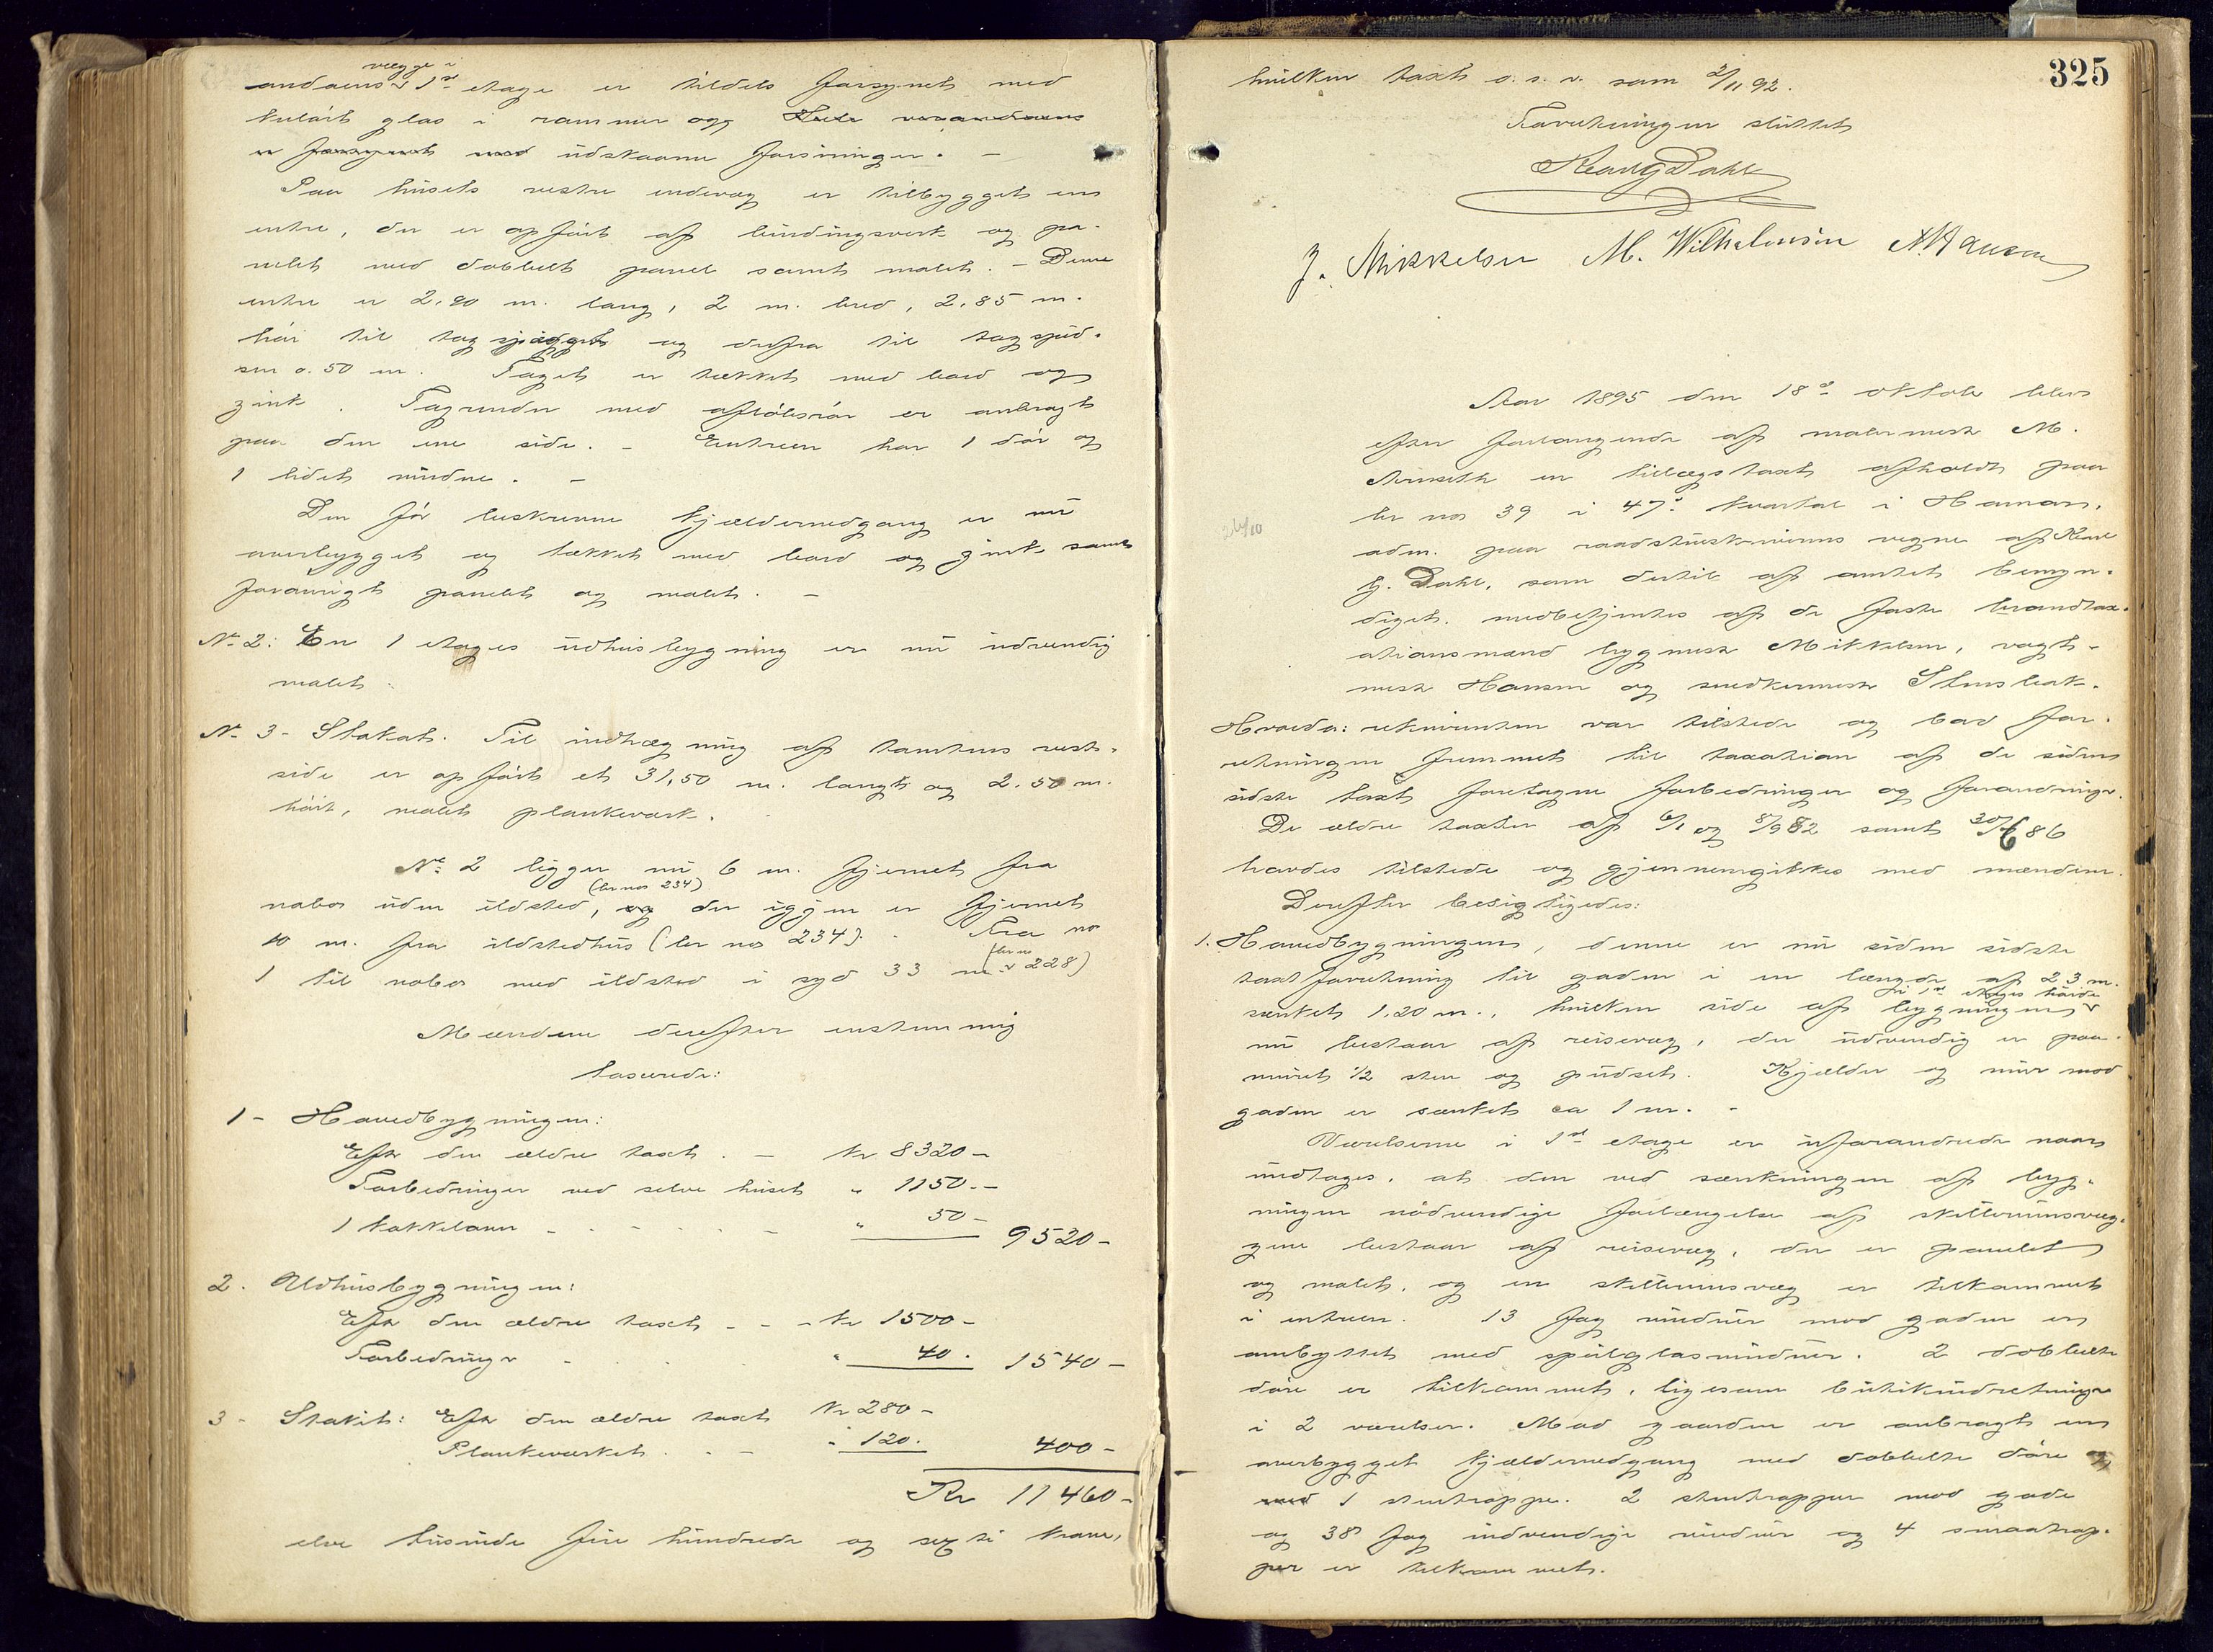 andaens vægge i 1ste etage er tildels forsynet med
kulørt glas i rammer og Hele verandaens
er forsynet med udskaarne forsiringer. —
Paa husets vestre endevæg er tilbygget en
entre, der er opført af bindingsverk og pa-
nelet med dobbelt panel samt malet. — Denne
entre er 2,90 m. lang, 2 m. bred, 2,85 m.
høi til tagskjægget og derfra til tagspid-
sen 0.50 m. Taget er tækket med bord og
zink. Tagrender med afløbsrør er anbragt
paa den ene side. — Entreen har 1 dør og
1 lidet vindue. —
Den før beskrevne kjældernedgang er nu
overbygget og tækket med bord og zink samt
forøvrigt panelet og malet. —
No 2: En 1 etages udhusbygning er nu udvendig
malet.
No 3 - Stakat. Til indhægning af tomtens vest-
side er opført et 31,50 m. langt og 2.50 m.
høit, malet plankeværk.
No 2 ligger nu 6 m. fjernet fra
nabo uden ildsted, (br no 234) og der igjen er fjernet
10 m. fra ildstedhus (br no 234). Fra no
1 til nabo med ildsted i syd 33 m (br no 228)
Mændene derefter enstemmig
taxerede:
1 - Hovedbygningen:
Efter den ældre taxt . — Kr 8320 -
Forbedringer ved selve huset " 1150.-
1 kakkelovn - - " 50 - 9520 -
2. Udhusbygningen:
Efter den ældre taxt - - - Kr 1500 -
Forbedringer - " 40. 1540 -
3 - Stakit: Efter den ældre taxt Kr 280 -
Plankeværket . - - " 120. 400 -
Kr 11460 -
elve tusinde fire hundrede og sexti kroner,
325
hvilken taxt o. s. v. som 2/11 92.
Forretningen sluttet
Kearly Dahl
J. Mikkelsen M. Wilhelmsen A. Hansen
Aar 1895 den 18de oktober blev
efter forlangende af malermester M.
en tillægstaxt afholdt paa
br no 39 i 47de kvartal i Hamar,
adm. paa raadstueskriverens vegne af Kearl
G. Dahl, som dertil af amtet bemyn-
diget, medbetjentes af de faste brandtax-
ationsmænd bygmester Mikkelsen, vogt-
mester Hansen og snedkermester Stensbak.
26/10
Hvorda: rekvirenten var tilstede og bad for-
retningen fremmet til taxation af de siden
sidste taxt foretagne forbedringer og forandringer.
De ældre taxter af 6/1 og 8/9 82 samt 30/6 86
havdes tilstede og gjennemgikkes med mændene.
Derefter besigtigedes:
1. Hovedbygningen, denne er nu siden sidste
taxtforretning til gaden i en længde af 23 m.
sænket 1,20 m., hvilken side af bygningen i 1ste etages høide
nu bestaar af reisevæg, der udvendig er paa-
muret 1/2 sten og pudset. Kjælder og mur mod
gaden er sænket ca 1 m. -
Værelserne i 1ste etage er uforandrede naar
undtages, at den ved sænkningen af byg-
ningen nødvendige forlængelse af skillerumsvæg-
gene bestaar af reisevæg, der er panelet
og malet, og en skillerumsvæg er tilkommet
i entreen. 13 fag vinduer mod gaden er
ombyttet med speilglasvinduer. 2 dobbelte
døre er tilkommet, ligesom butikindretninger
i 2 værelser. Mod gaarden er anbragt en
overbygget kjældernedgang med dobbelte døre og
med 1 stentrappe. 2 stentrapper mod gade
og 38 fag indvendige vinduer og 4 smaatrap-
per er tilkommet.